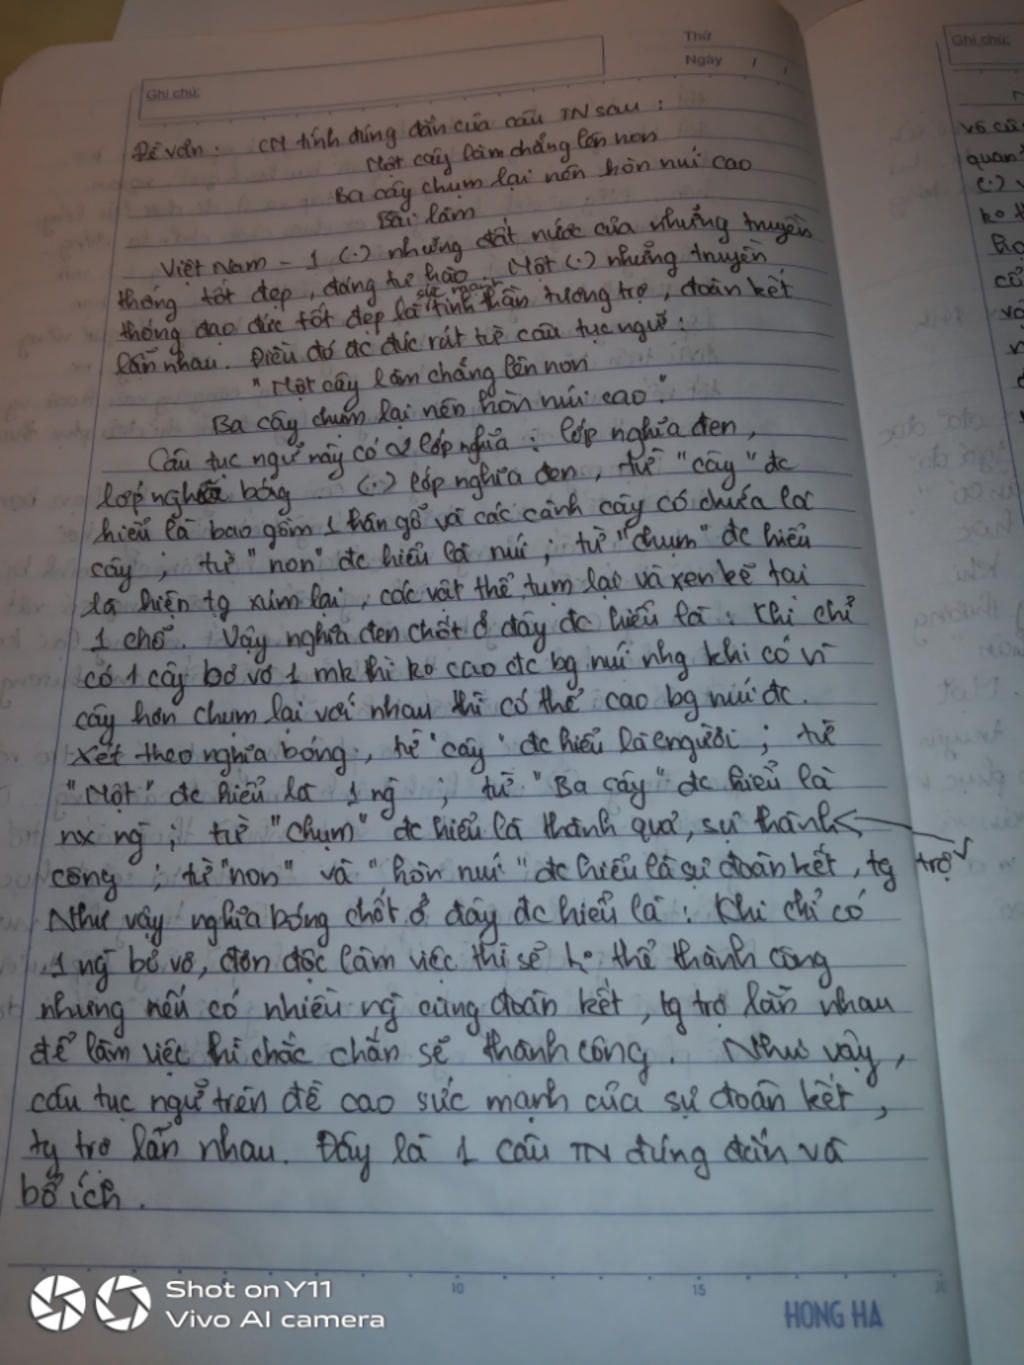 Thứ
Ngày / /
Ghi chú:
Ghi chú:
Đề văn: CM tính đúng đắn của câu TN sau :
Một cây làm chẳng lên non
Ba cây chụm lại nên hòn núi cao
Bài làm
Việt Nam - 1 (.) những đất nước của những truyền
thống tốt đẹp, đáng tự hào. Một (.) những truyền
sức mạnh
thống đạo đức tốt đẹp là tinh thần tương trợ, đoàn kết
lẫn nhau. Điều đó đc đúc rút từ câu tục ngữ :
"Một cây làm chẳng lên non
Ba cây chụm lại nên hòn núi cao."
Câu tục ngữ này có 2 lớp nghĩa : lớp nghĩa đen,
lớp nghĩa bóng (.) lớp nghĩa đen, từ "cây" đc
hiểu là bao gồm 1 thân gỗ và các cành cây có chứa lá
cây ; từ "non" đc hiểu là núi ; từ "chụm" đc hiểu
là hiện tg xúm lại, các vật thể tụm lại và xen kẽ tại
1 chỗ. Vậy nghĩa đen chốt ở đây đc hiểu là : Khi chỉ
có 1 cây bơ vơ 1 mk thì ko cao đc bg núi nhg khi có vì
cây hơn chụm lại với nhau thì có thể cao bg núi đc.
Xét theo nghĩa bóng, từ "cây" đc hiểu là người ; từ
"Một" đc hiểu là 1 ng ; từ "Ba cây" đc hiểu là
nx ng ; từ "chụm" đc hiểu là thành quả, sự thành
công ; từ "non" và "hòn núi" đc hiểu là sự đoàn kết, tg trợ
Như vậy nghĩa bóng chốt ở đây đc hiểu là : Khi chỉ có
1 ng bơ vơ, đơn độc làm việc thì sẽ ko thể thành công
nhưng nếu có nhiều ng cùng đoàn kết, tg trợ lẫn nhau
để làm việc thì chắc chắn sẽ thành công. Như vậy,
câu tục ngữ trên đề cao sức mạnh của sự đoàn kết,
tg trợ lẫn nhau. Đây là 1 câu TN đúng đắn và
bổ ích.
10 15 20
HONG HA
Shot on Y11
Vivo AI camera